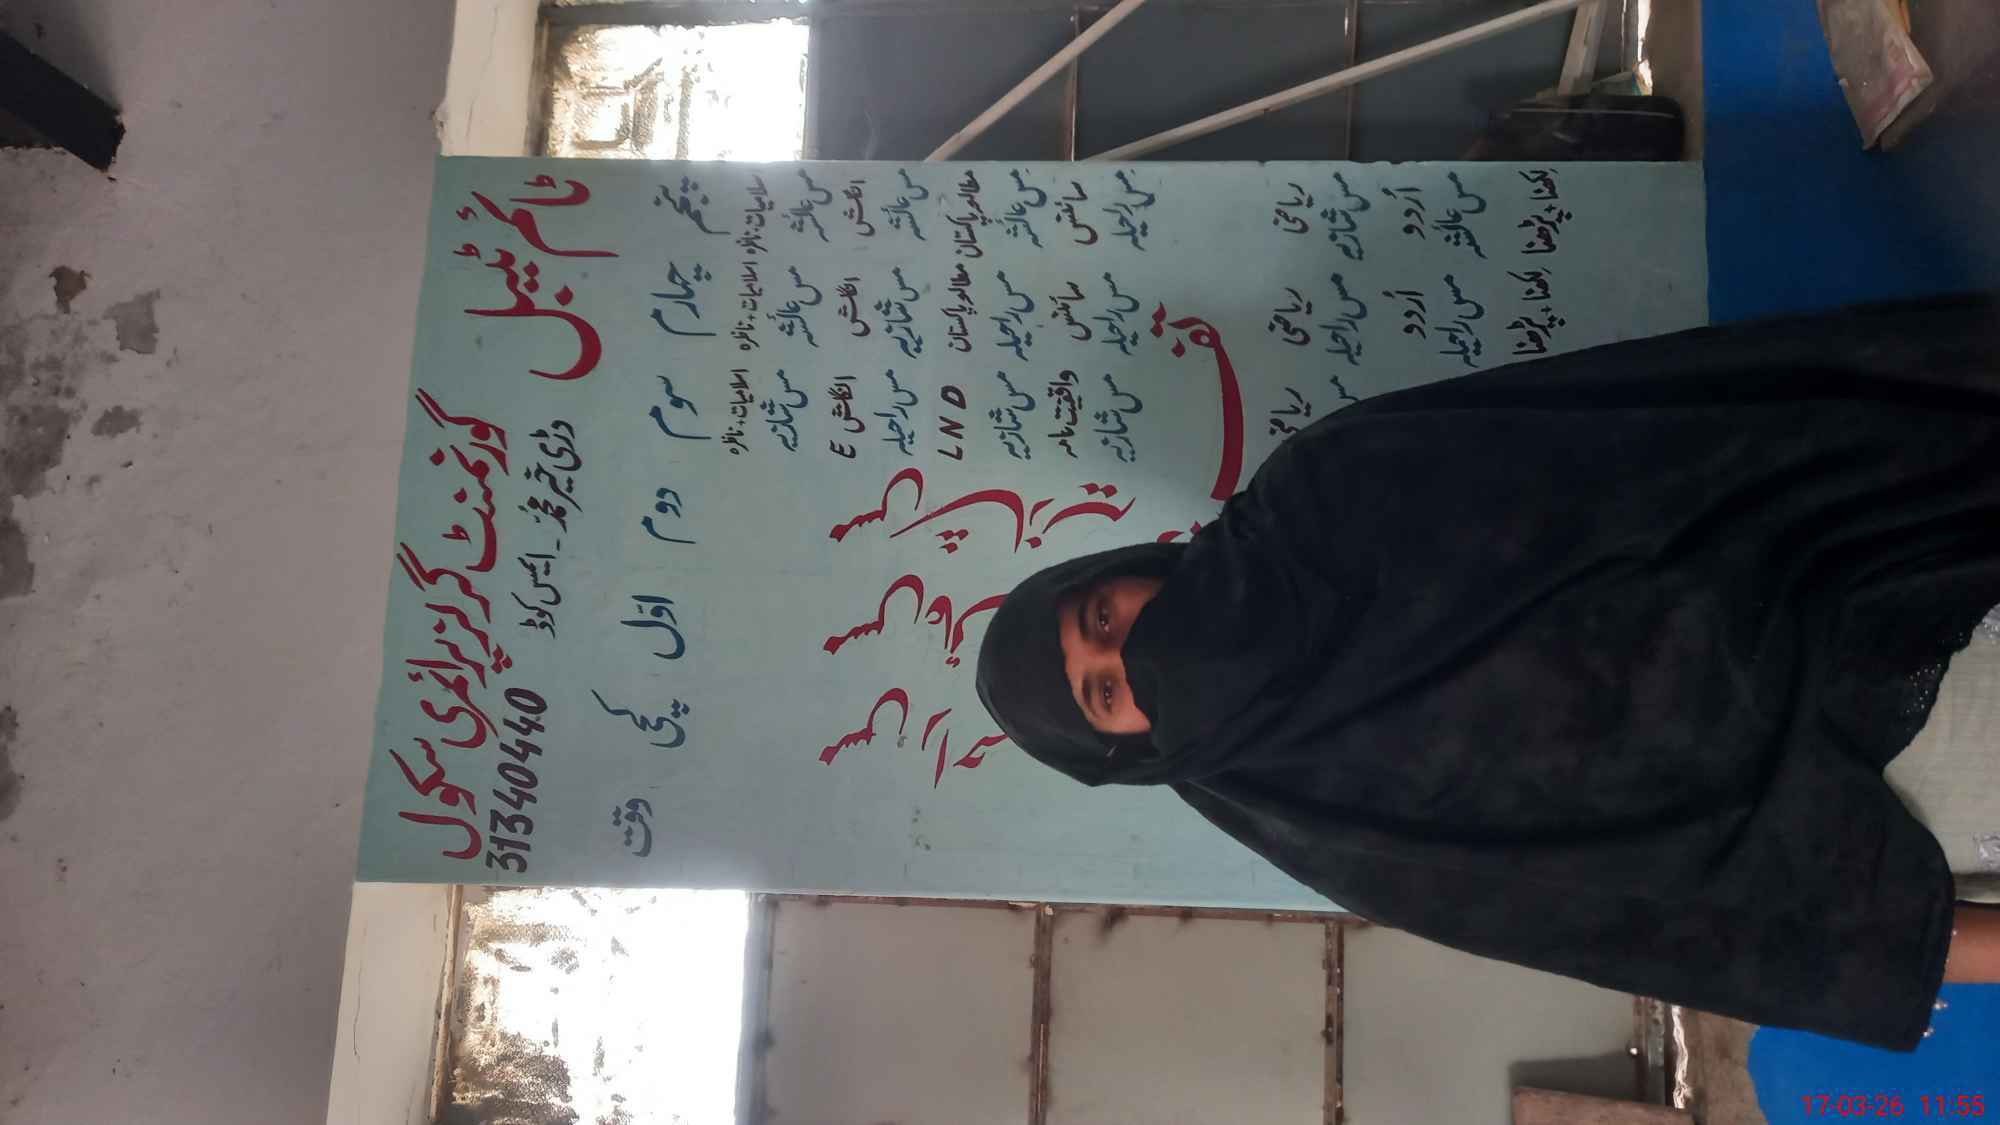 گورنمنٹ گرلز پرائمری سکول ٹائم ٹیبل
31340440 ایمس کوڈ
وقت کچی اوّل دوم سوم چہارم پنجم
اسلامیات، ناظرہ اسلامیات+ناظرہ اسلامیات، ناظرہ
مس شازیہ مس عائشہ مس عائشہ
انگلش E انگلش انگلش
مس راحیلہ مس شازیہ مس عائشہ
LND مطالعہ پاکستان مطالعہ پاکستان
مس شازیہ مس راحیلہ مس عائشہ
واقفیت عامہ سائنس سائنس
مس شازیہ مس راحیلہ مس راحیلہ
ریاضی ریاضی ریاضی
مس مس راحیلہ مس شازیہ
اُردو اُردو
مس راحیلہ مس عائشہ
لکھنا، پڑھنا لکھنا، پڑھنا
17-03-26 11:55